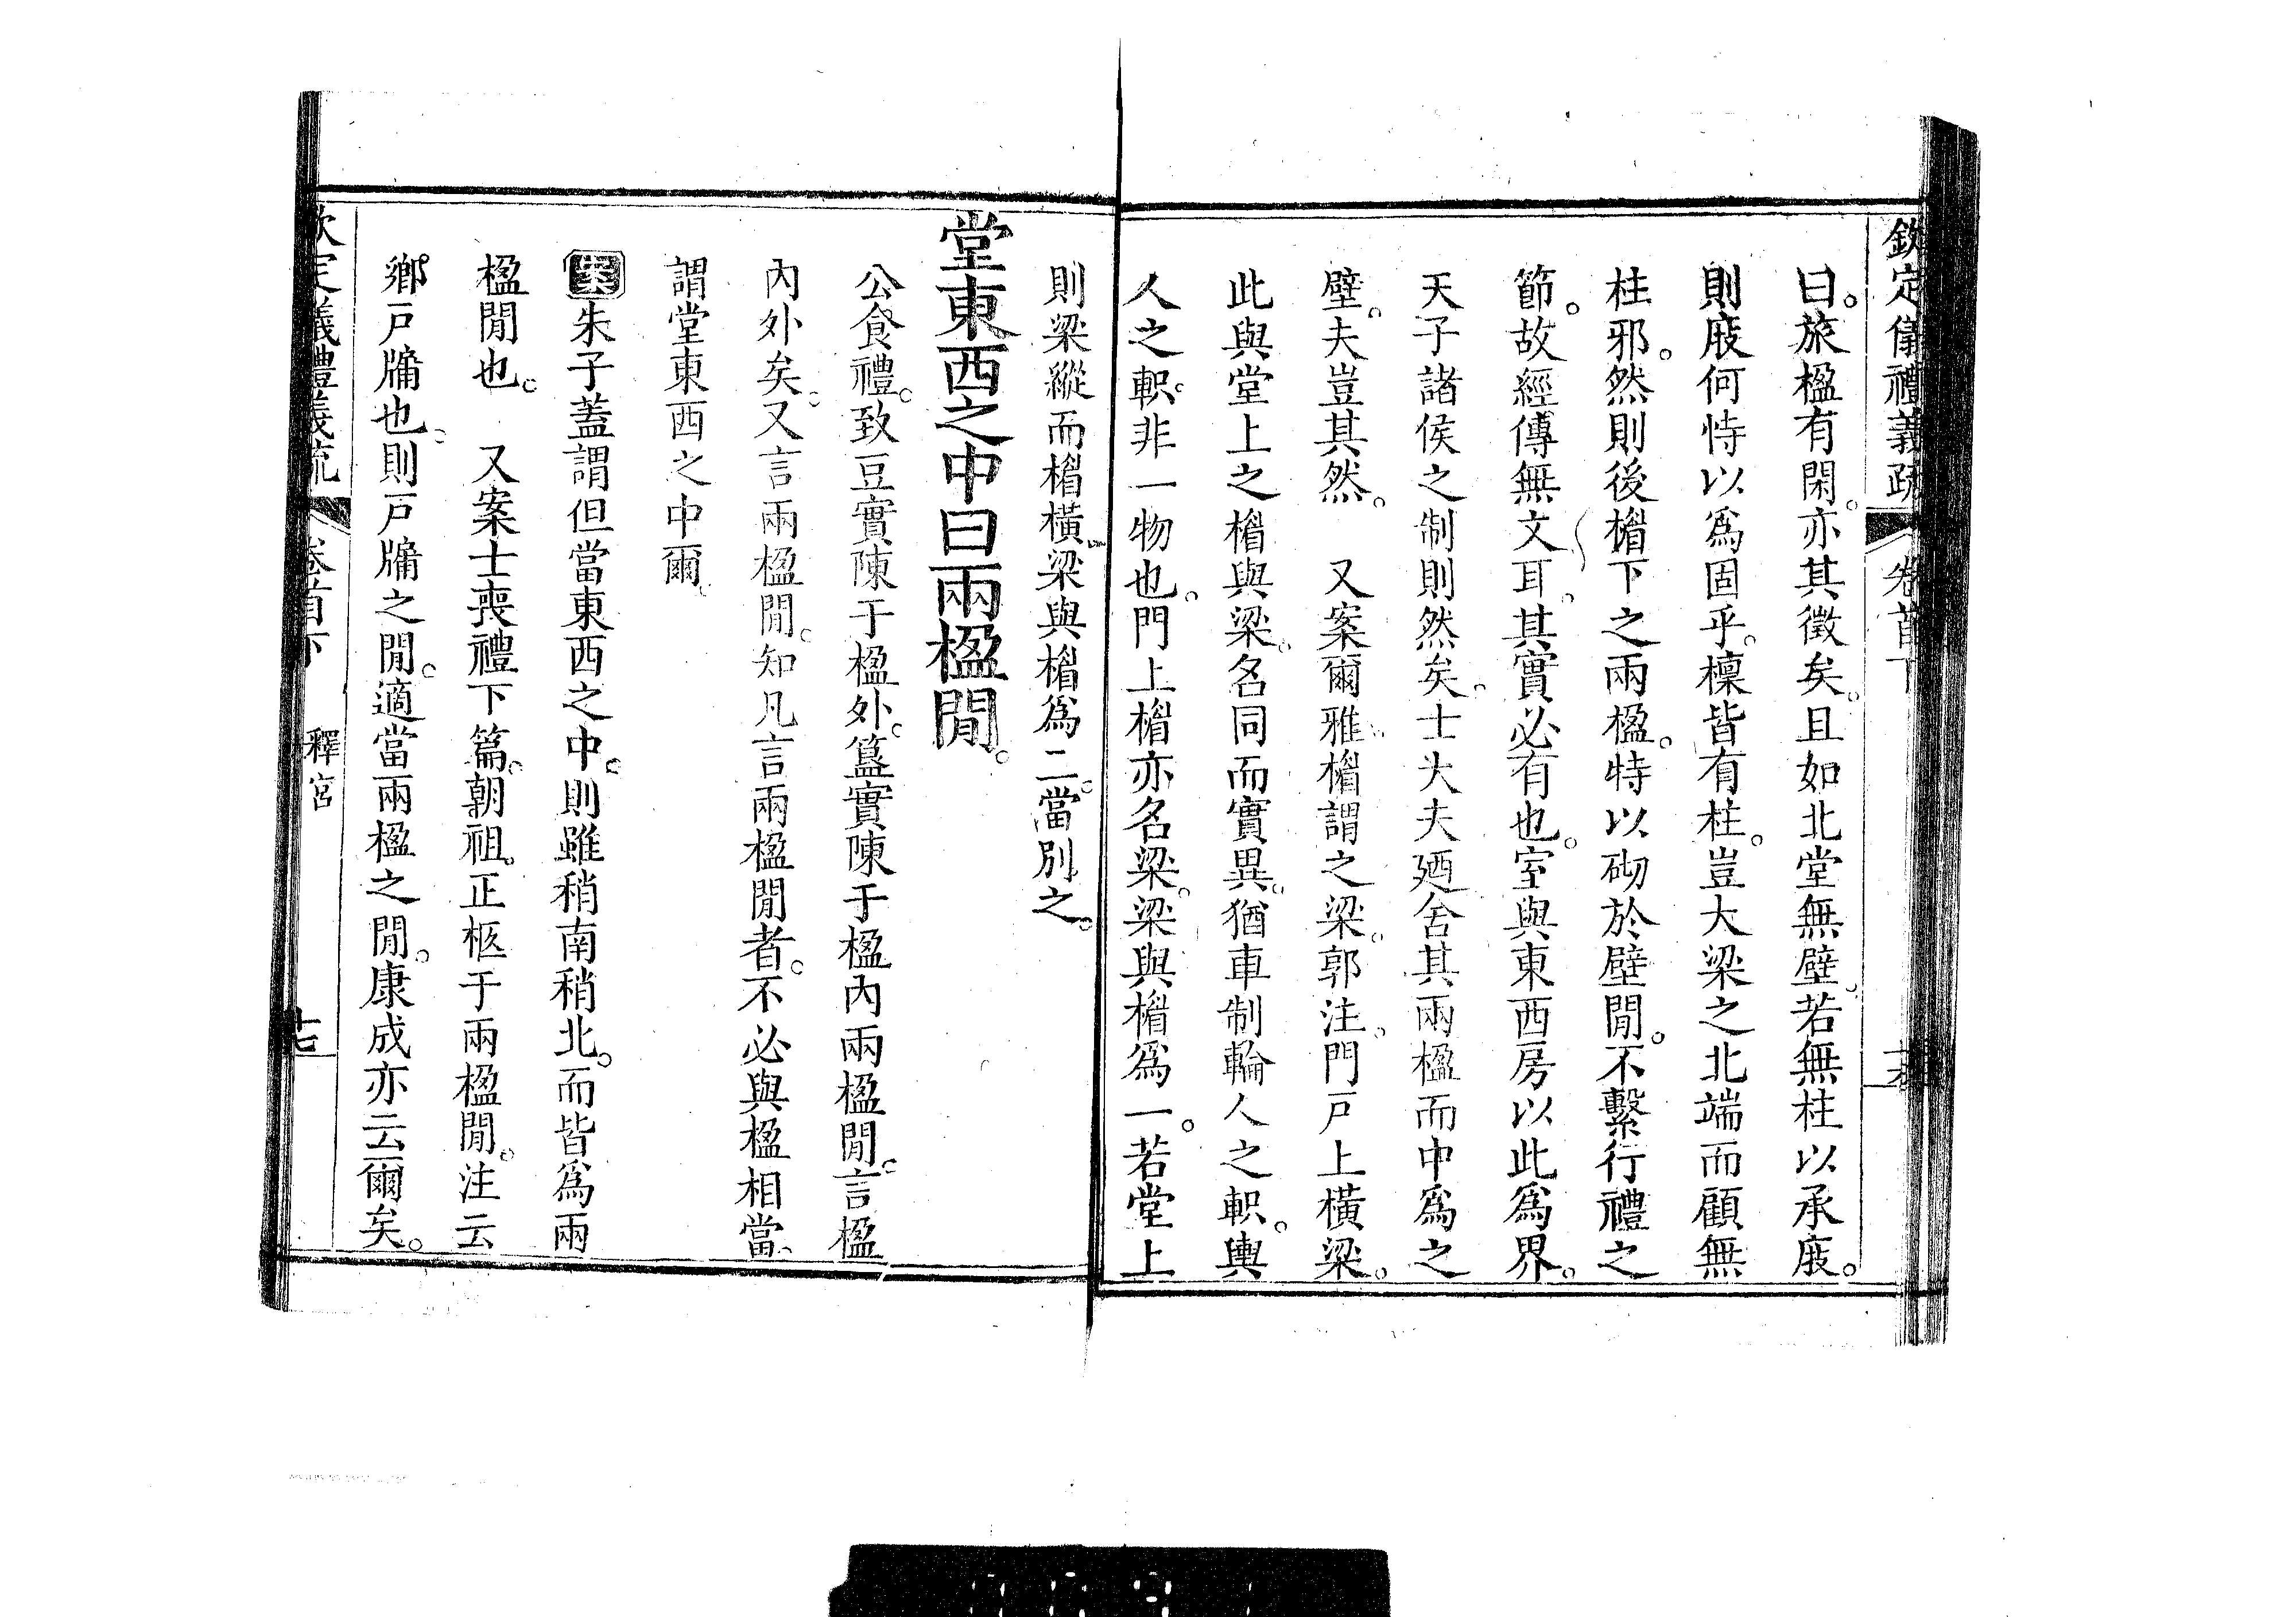 欽定儀禮義疏 卷首下
曰。旅楹有閑。亦其徵矣。且如北堂無壁。若無柱以承庪。
則庪何恃以為固乎。檁皆有柱。豈大梁之北端而顧無
柱邪。然則後楣下之兩楹。特以砌於壁閒。不繫行禮之
節。故經傳無文耳。其實必有也。室與東西房以此為界。
天子諸侯之制則然矣。士大夫廼舍其兩楹而中為之
壁。夫豈其然。 又案爾雅。楣謂之梁。郭注。門戸上橫梁。
此與堂上之楣與梁。名同而實異。猶車制輪人之軹。輿
人之軹。非一物也。門上楣亦名梁。梁與楣為一。若堂上
則梁縱而楣橫。梁與楣為二。當別之。
堂東西之中曰兩楹閒。
公食禮。致豆實陳于楹外。簋實陳于楹內兩楹閒。言楹
內外矣。又言兩楹閒。知凡言兩楹閒者。不必與楹相當。
謂堂東西之中爾。
案朱子蓋謂但當東西之中。則雖稍南稍北。而皆為兩
楹閒也。 又案士喪禮下篇。朝祖。正柩于兩楹閒。注云
鄉戸牖也。則戸牖之閒。適當兩楹之閒。康成亦云爾矣。
欽定儀禮義疏 卷首下 釋宮